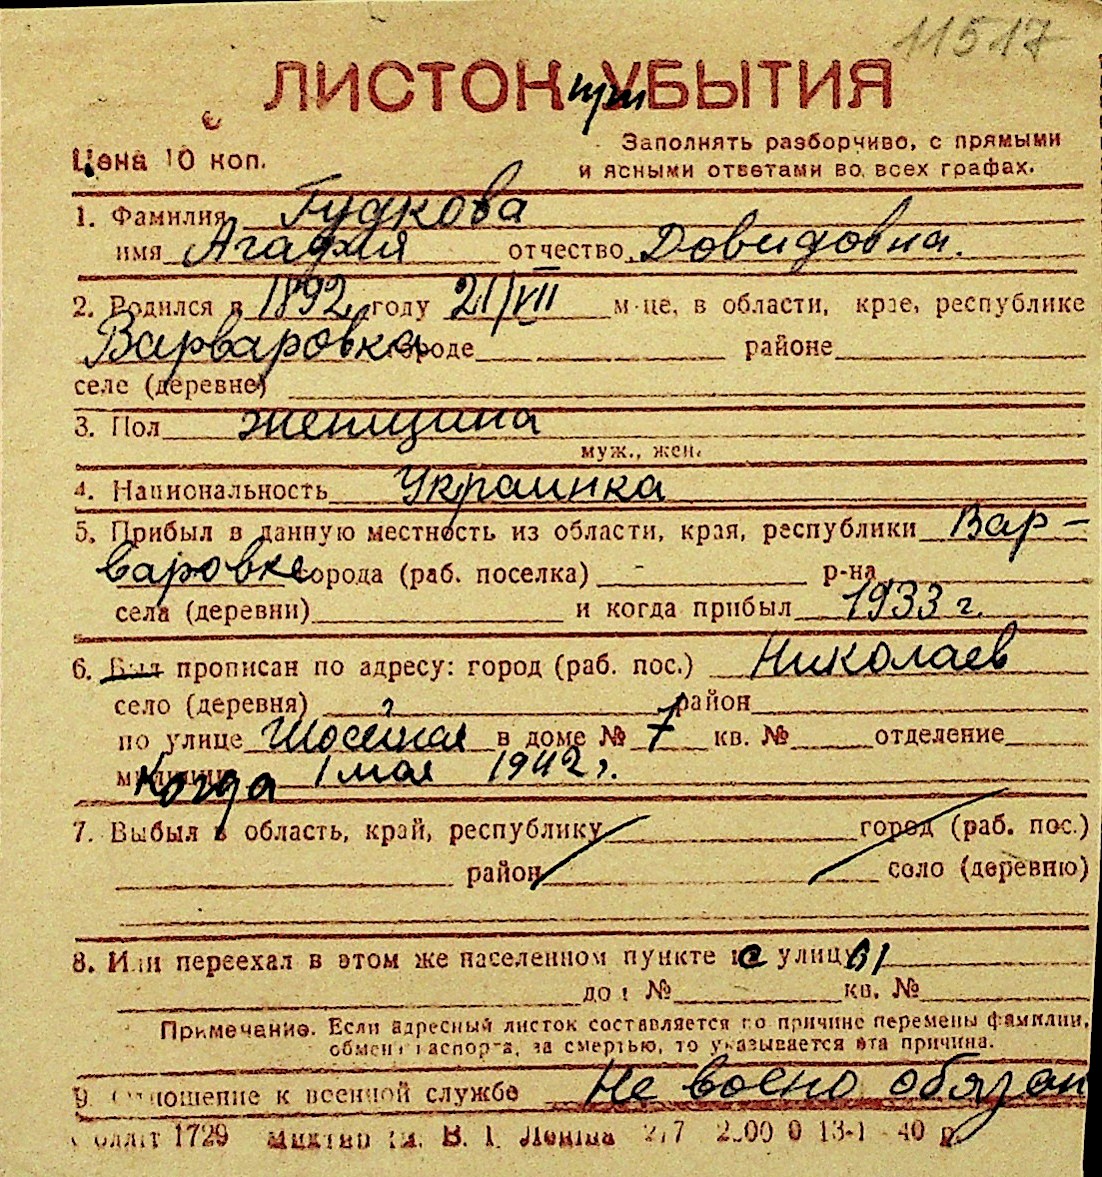 11517
ЛИСТОК при УБЫТИЯ
Цена 10 коп.
Заполнять разборчиво, с прямыми
и ясными ответами во всех графах.
1. Фамилия Гудкова
имя Агафия отчество Довидовна.
2. Родился в 1892 году 21/VII м-це, в области, крае, республике
Варваровка городе районе
селе (деревне)
3. Пол женщина
муж., жен.
4. Национальность Украинка
5. Прибыл в данную местность из области, края, республики Вар-
варовке города (раб. поселка) - р-на
села (деревни) и когда прибыл 1933 г.
6. Был прописан по адресу: город (раб. пос.) Николаев
село (деревня) район
по улице Шосейная в доме № 7 кв. № отделение
милиции Когда 1 мая 1942 г.
7. Выбыл в область, край, республику город (раб. пос.)
район село (деревню)
8. Или переехал в этом же населенном пункте с улицы
дом № кв. №
Примечание. Если адресный листок составляется по причине перемены фамилии,
обмена паспорта, за смертью, то указывается эта причина.
9. Отношение к военной службе Не воено обязан
1729 им. В. І. Леніна 2/7 13-1 40